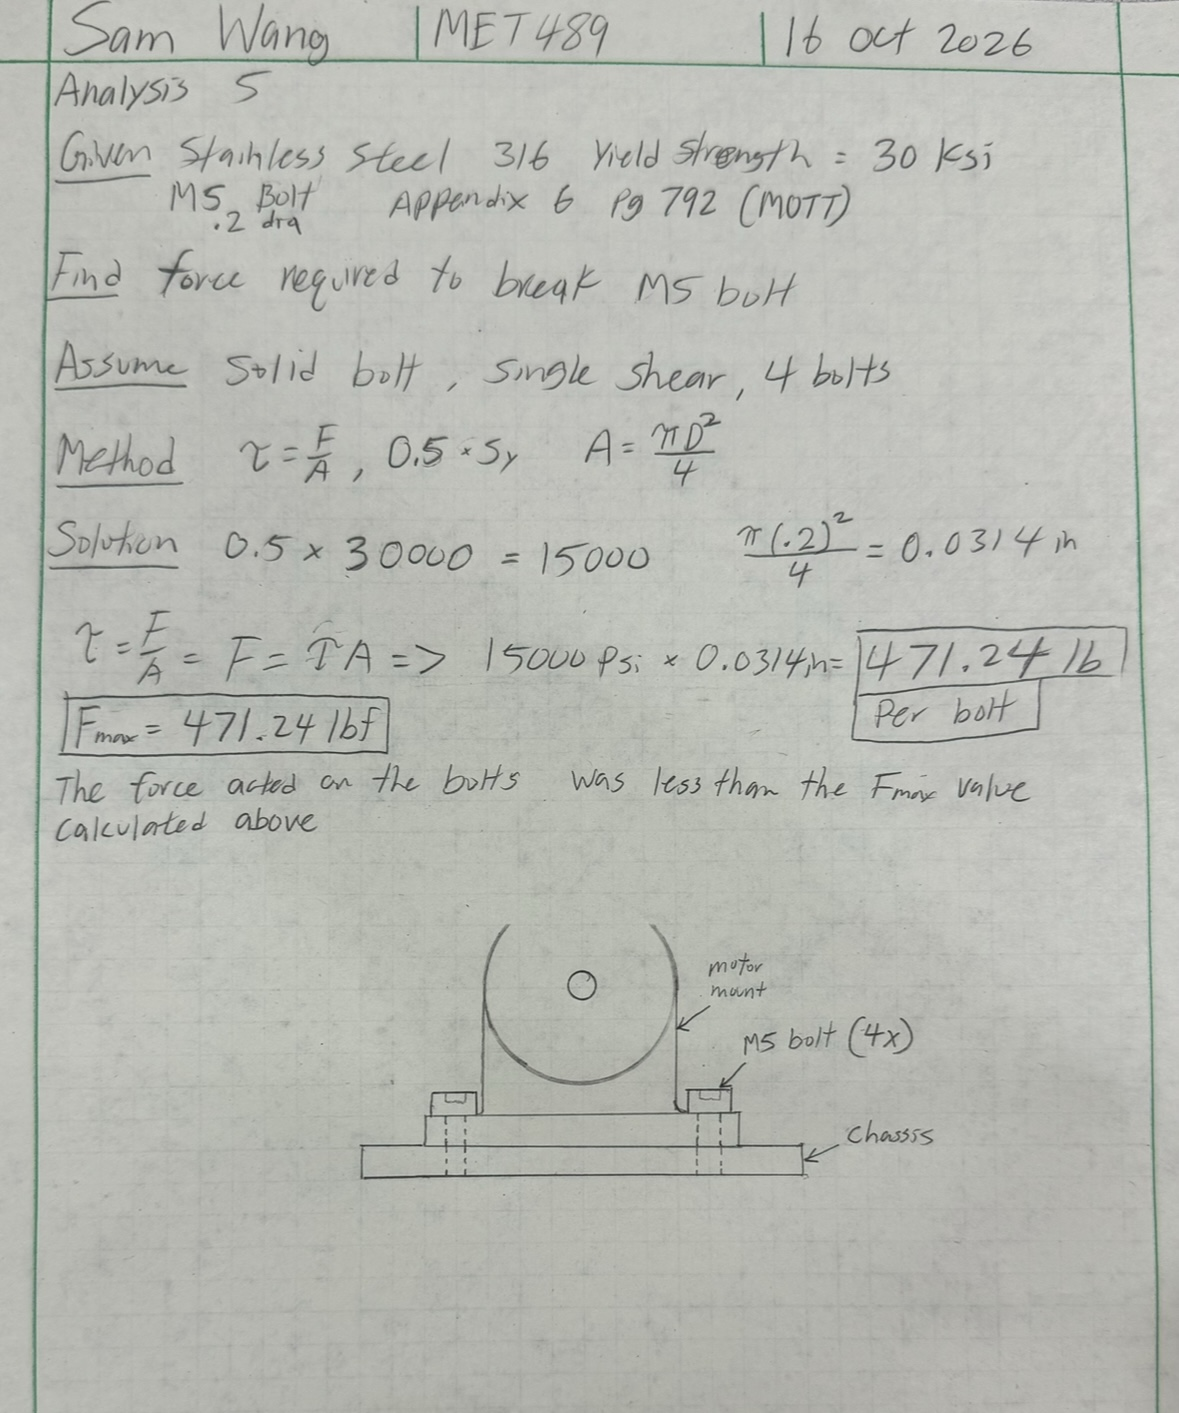 Sam Wang | MET489 | 16 Oct 2026
Analysis 5
Given Stainless Steel 316 Yield Strength = 30 Ksi
M5 Bolt Appendix 6 Pg 792 (MOTT)
.2 dia
Find force required to break M5 bolt
Assume Solid bolt, Single shear, 4 bolts
Method τ = F/A, 0.5 · Sy A = πD²/4
Solution 0.5 × 30000 = 15000 π(.2)²/4 = 0.0314 in
τ = F/A = F = τA => 15000 Psi × 0.0314in = 471.24 lb
Per bolt
Fmax = 471.24 lbf
The force acted on the bolts was less than the Fmax value
calculated above
motor
mount
M5 bolt (4x)
Chassis